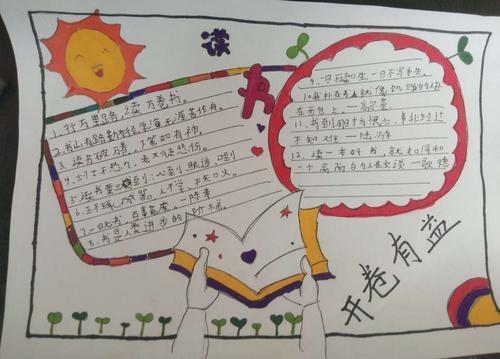 读书
1.行万里路,读万卷书。
2.书山有路勤为径学海无涯苦作舟。
3.读书破万卷,下笔如有神。
4.少小不努力,老大徒悲伤。
5.读书要三到:心到、眼到、口到
6.玉不琢、不成器、人不学、不知义。
7.一日无书,百事荒废。—陈寿
8.书是人类进步的阶梯。
9.一日不读口生,一日不写手生。
在面包上。—高尔基
11.书到用时方恨少、事非经过
不知难。—陆游
12.读一本好书,就如同和
一个高尚的人在交谈—歌德
开卷有益